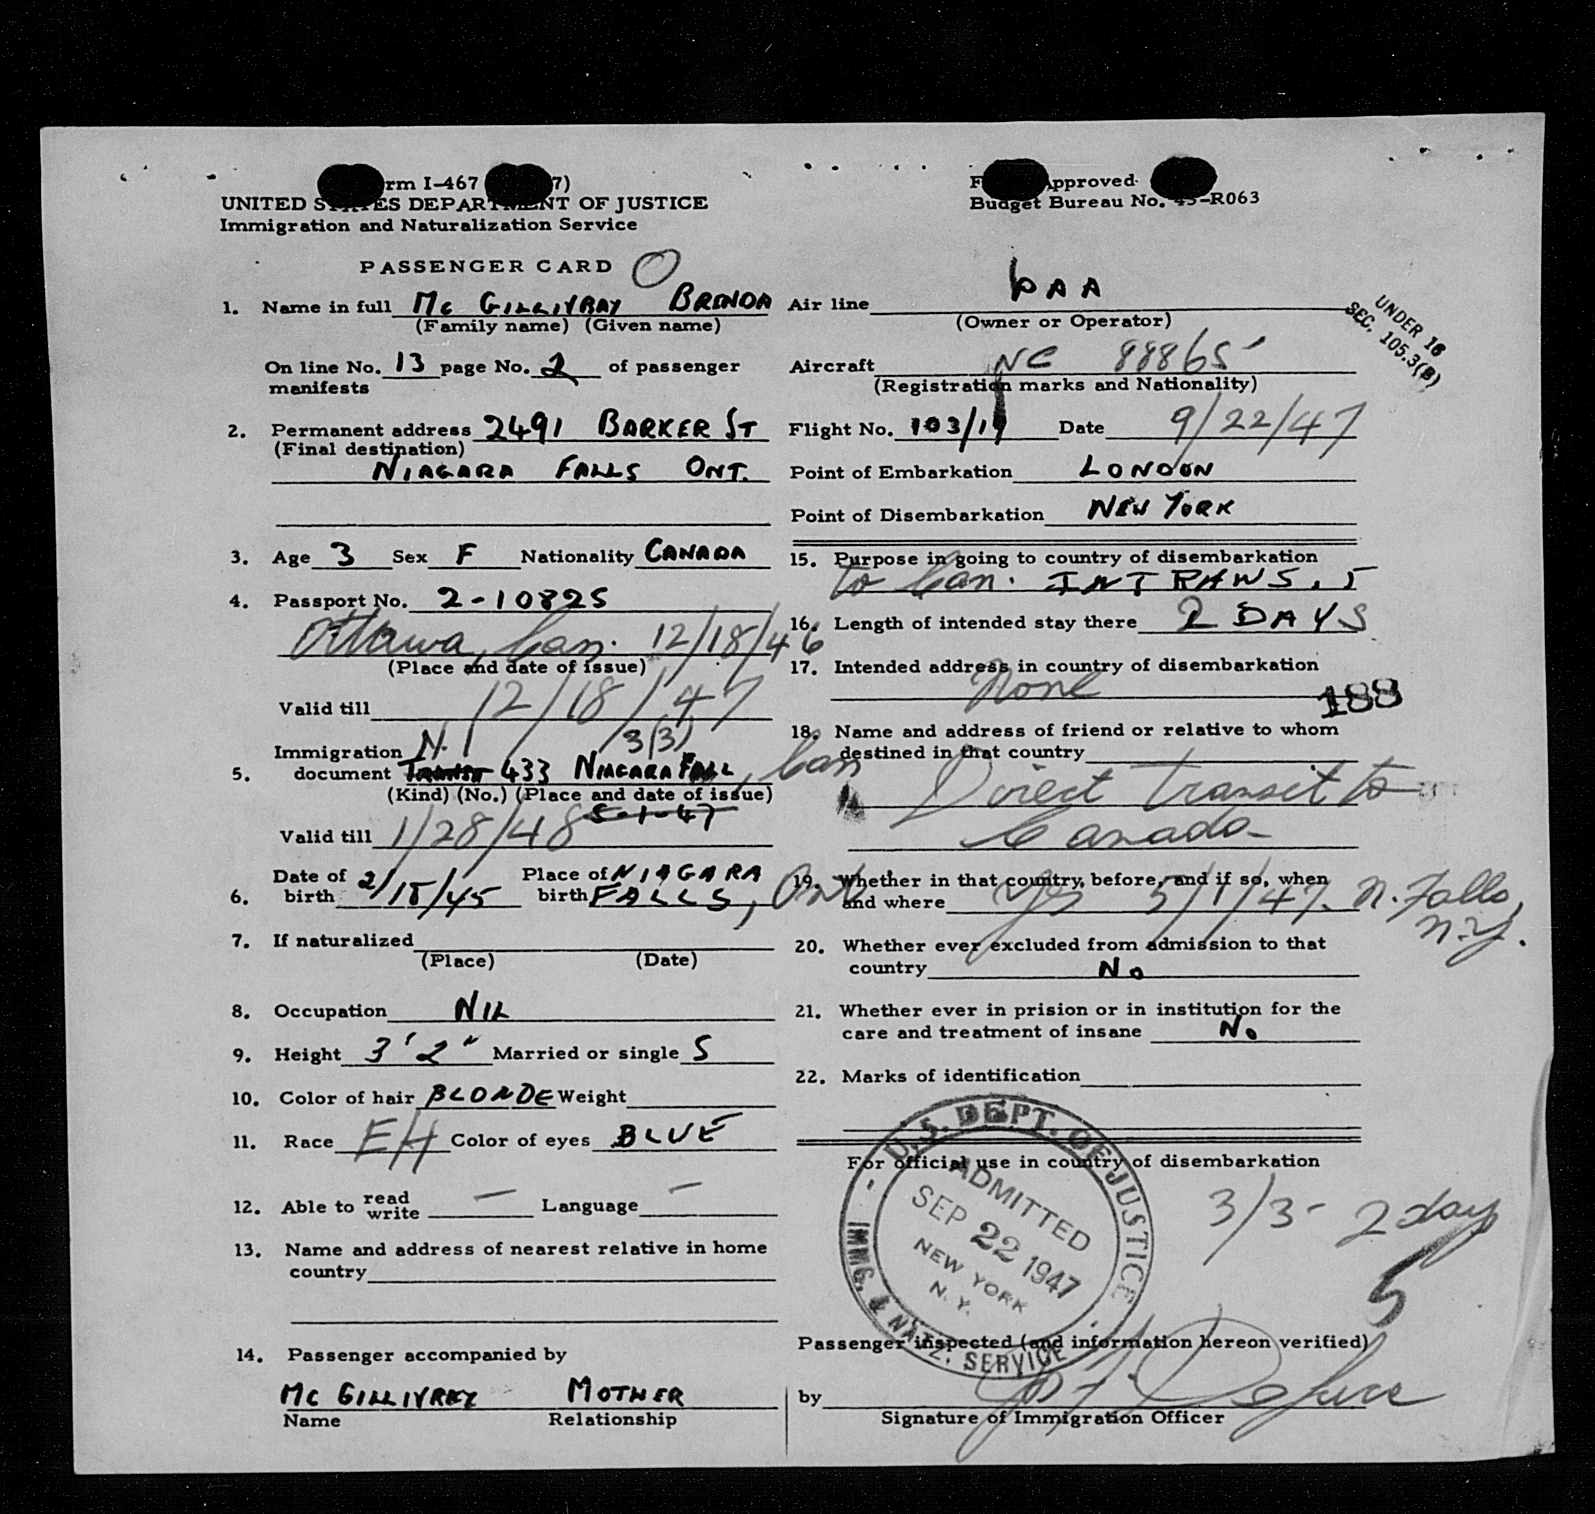 rm I-467 7)
UNITED STATES DEPARTMENT OF JUSTICE
Immigration and Naturalization Service
Approved
Budget Bureau No. 43-R063
PASSENGER CARD O
1. Name in full Mc GILLIVRAY BRENDA
(Family name) (Given name)
On line No. 13 page No. 2 of passenger
manifests
2. Permanent address 2491 BARKER ST
(Final destination)
NIAGARA FALLS ONT.
3. Age 3 Sex F Nationality CANADA
4. Passport No. 2-10825
Ottawa, Can. 12/18/46
(Place and date of issue)
Valid till 12/18/47
3(3)
Immigration
5. document 433 NIAGARA FALL, Can
(Kind) (No.) (Place and date of issue)
5-1-47
Valid till 1/28/48
6. Date of birth 2/15/45 Place of birth NIAGARA FALLS, Ont
7. If naturalized
(Place) (Date)
8. Occupation NIL
9. Height 3' 2" Married or single S
10. Color of hair BLONDE Weight
11. Race EH Color of eyes BLUE
12. Able to read write — Language —
13. Name and address of nearest relative in home
country
14. Passenger accompanied by
Mc GILLIVRAY MOTHER
Name Relationship
Air line AA
(Owner or Operator)
UNDER 16
SEC. 105.3(B)
Aircraft NC 88865
(Registration marks and Nationality)
Flight No. 103/19 Date 9/22/47
Point of Embarkation LONDON
Point of Disembarkation NEW YORK
15. Purpose in going to country of disembarkation
to Can. INTRANS.T
16. Length of intended stay there 2 DAYS
17. Intended address in country of disembarkation
None
188
18. Name and address of friend or relative to whom
destined in that country
Direct transit to
Canada
19. Whether in that country before, and if so, when
and where Yes 5/1/47. N. Falls,
N.Y.
20. Whether ever excluded from admission to that
country No
21. Whether ever in prision or in institution for the
care and treatment of insane No
22. Marks of identification
For official use in country of disembarkation
U.S. DEPT. OF JUSTICE
ADMITTED
SEP 22 1947
NEW YORK
N.Y.
IMMG. & NATZ. SERVICE
3/3- 2 days
5
Passenger inspected (and information hereon verified)
by
Signature of Immigration Officer